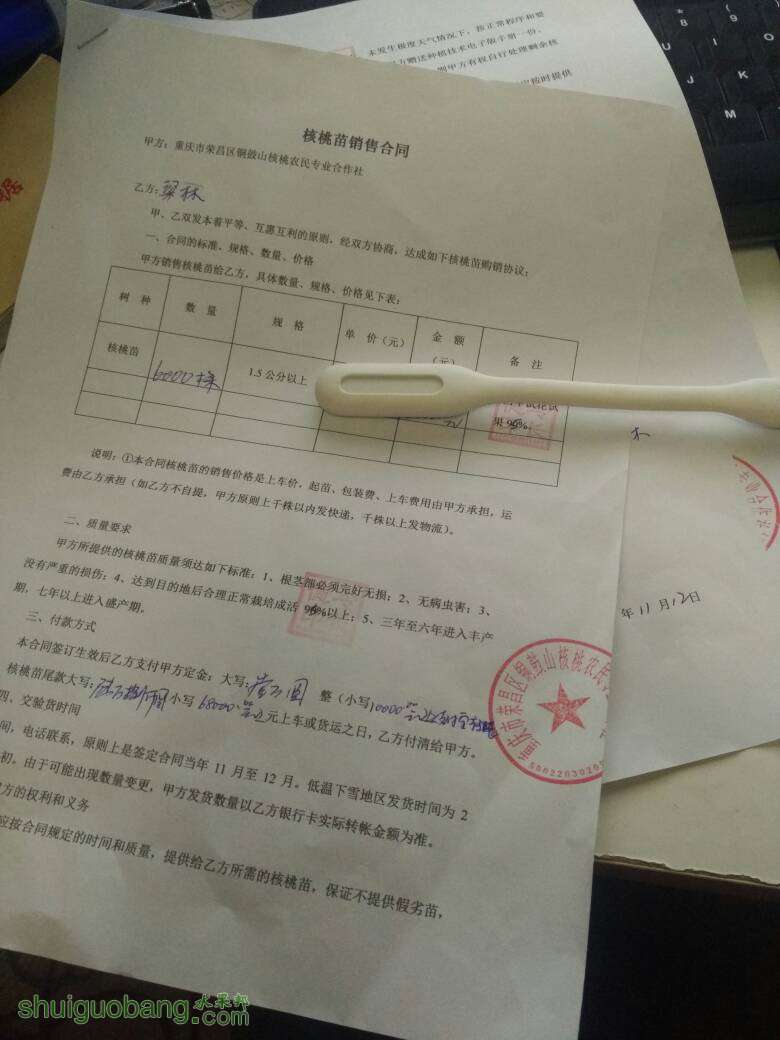 未发生极度天气情况下，按正常程序和要
赠送种植技术电子版手册一份。
甲方有权自行处理剩余核
按时提供
核桃苗销售合同
甲方：重庆市荣昌区铜鼓山核桃农民专业合作社
乙方：梁林
甲、乙双发本着平等、互惠互利的原则，经双方协商，达成如下核桃苗购销协议：
一、合同的标准、规格、数量、价格
甲方销售核桃苗给乙方，具体数量、规格、价格见下表：
树 种 数 量 规 格 单 价（元） 金 额（元） 备 注
核桃苗 6000株 1.5公分以上
果99%。
说明：①本合同核桃苗的销售价格是上车价，起苗、包装费、上车费用由甲方承担，运
费由乙方承担（如乙方不自提，甲方原则上千株以内发快递，千株以上发物流）。
二、质量要求
甲方所提供的核桃苗质量须达如下标准：1、根茎部必须完好无损；2、无病虫害；3、
没有严重的损伤；4、达到目的地后合理正常栽培成活 %以上；5、三年至六年进入丰产
期，七年以上进入盛产期。
三、付款方式
本合同签订生效后乙方支付甲方定金：大写：壹万圆 整（小写10000
核桃苗尾款大写： 小写68000 元上车或货运之日，乙方付清给甲方。
四、交验货时间
间，电话联系，原则上是签定合同当年 11 月至 12 月。低温下雪地区发货时间为 2
初。由于可能出现数量变更，甲方发货数量以乙方银行卡实际转帐金额为准。
方的权利和义务
应按合同规定的时间和质量，提供给乙方所需的核桃苗，保证不提供假劣苗，
年11月12日
市荣昌区铜鼓山核桃农民
水果邦
shuiguobang.com
8
9
U
I
O
J
K
M